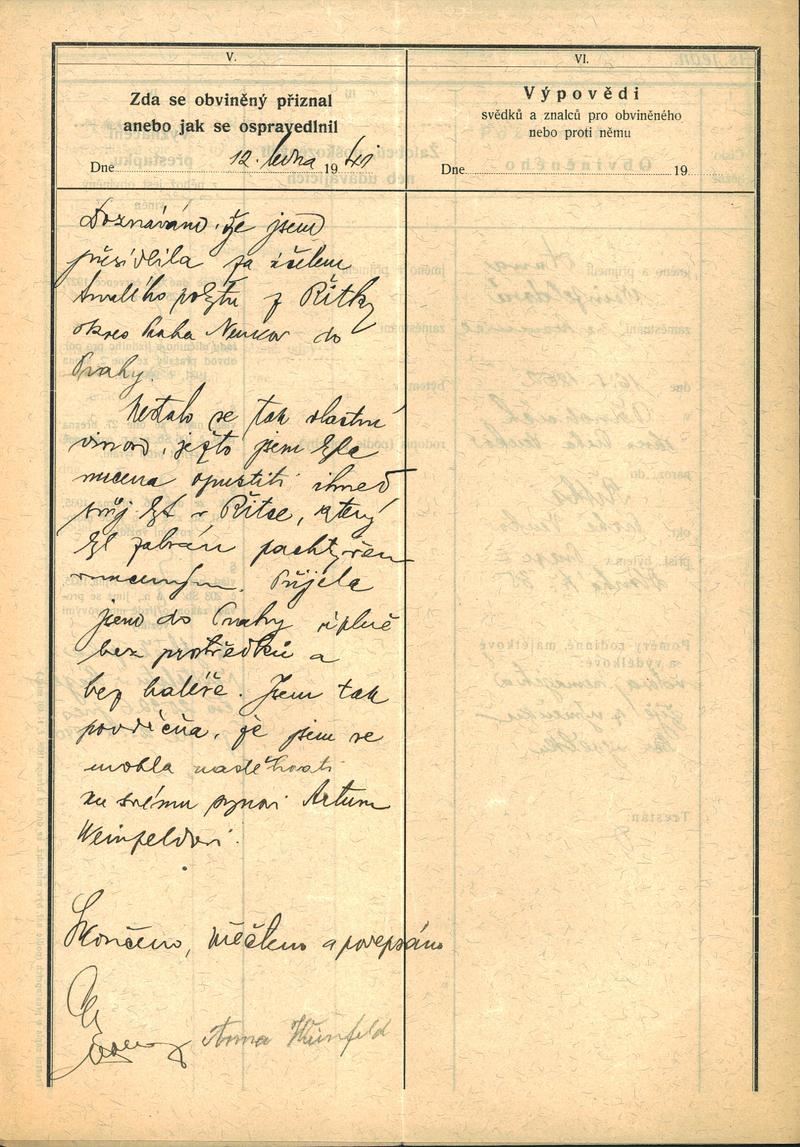 V.
Zda se obviněný přiznal
anebo jak se ospravedlnil
Dne 12. ledna 1941
VI.
Výpovědi
svědků a znalců pro obviněného
nebo proti němu
Dne 19
Doznávám, že jsem
přesídlila za účelem
trvalého pobytu z Řitky
okres Praha Venkov do
Prahy.
Nestalo se tak vlastní
vinou, ježto jsem byla
nucena opustiti ihned
svůj byt v Řitce, který
byl zabrán pachtýřem
Přijela
jsem do Prahy úplně
bez prostředků a
bez haléře. Jsem tak
povděčna, že jsem se
mohla nastěhovati
ku svému synovi Arturu
Weinfeldovi.
Skončeno, přečteno a podepsáno
Anna Weinfeld